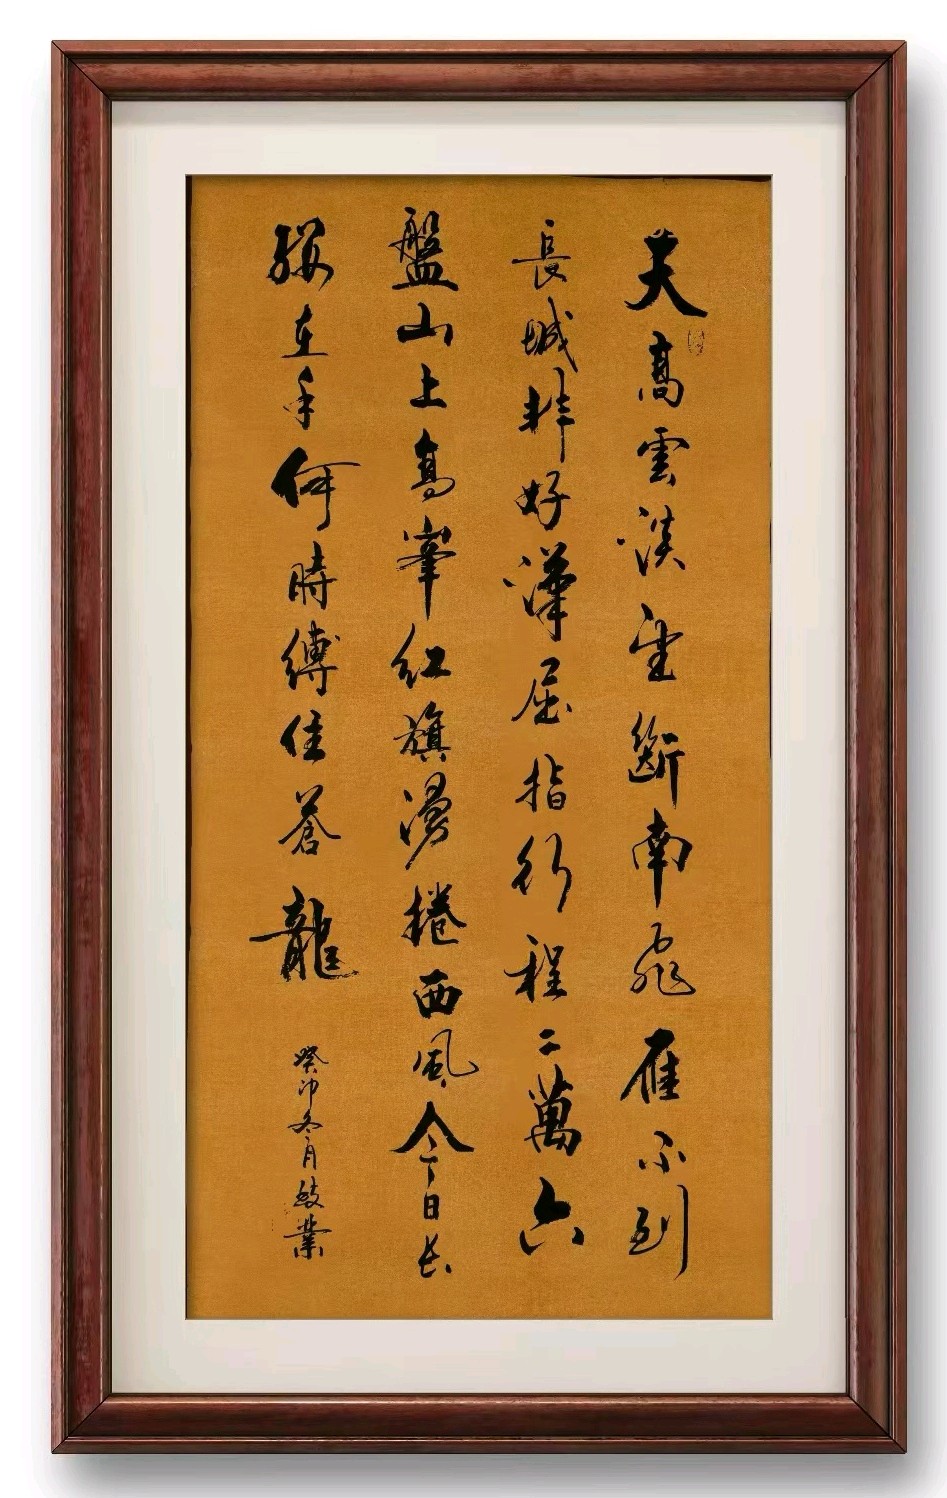 天高雲淡望斷南飛雁不到
長城非好漢屈指行程二萬六
盤山上高峯紅旗漫捲西風今日长
纓在手何時縛住蒼龍
癸卯冬月業